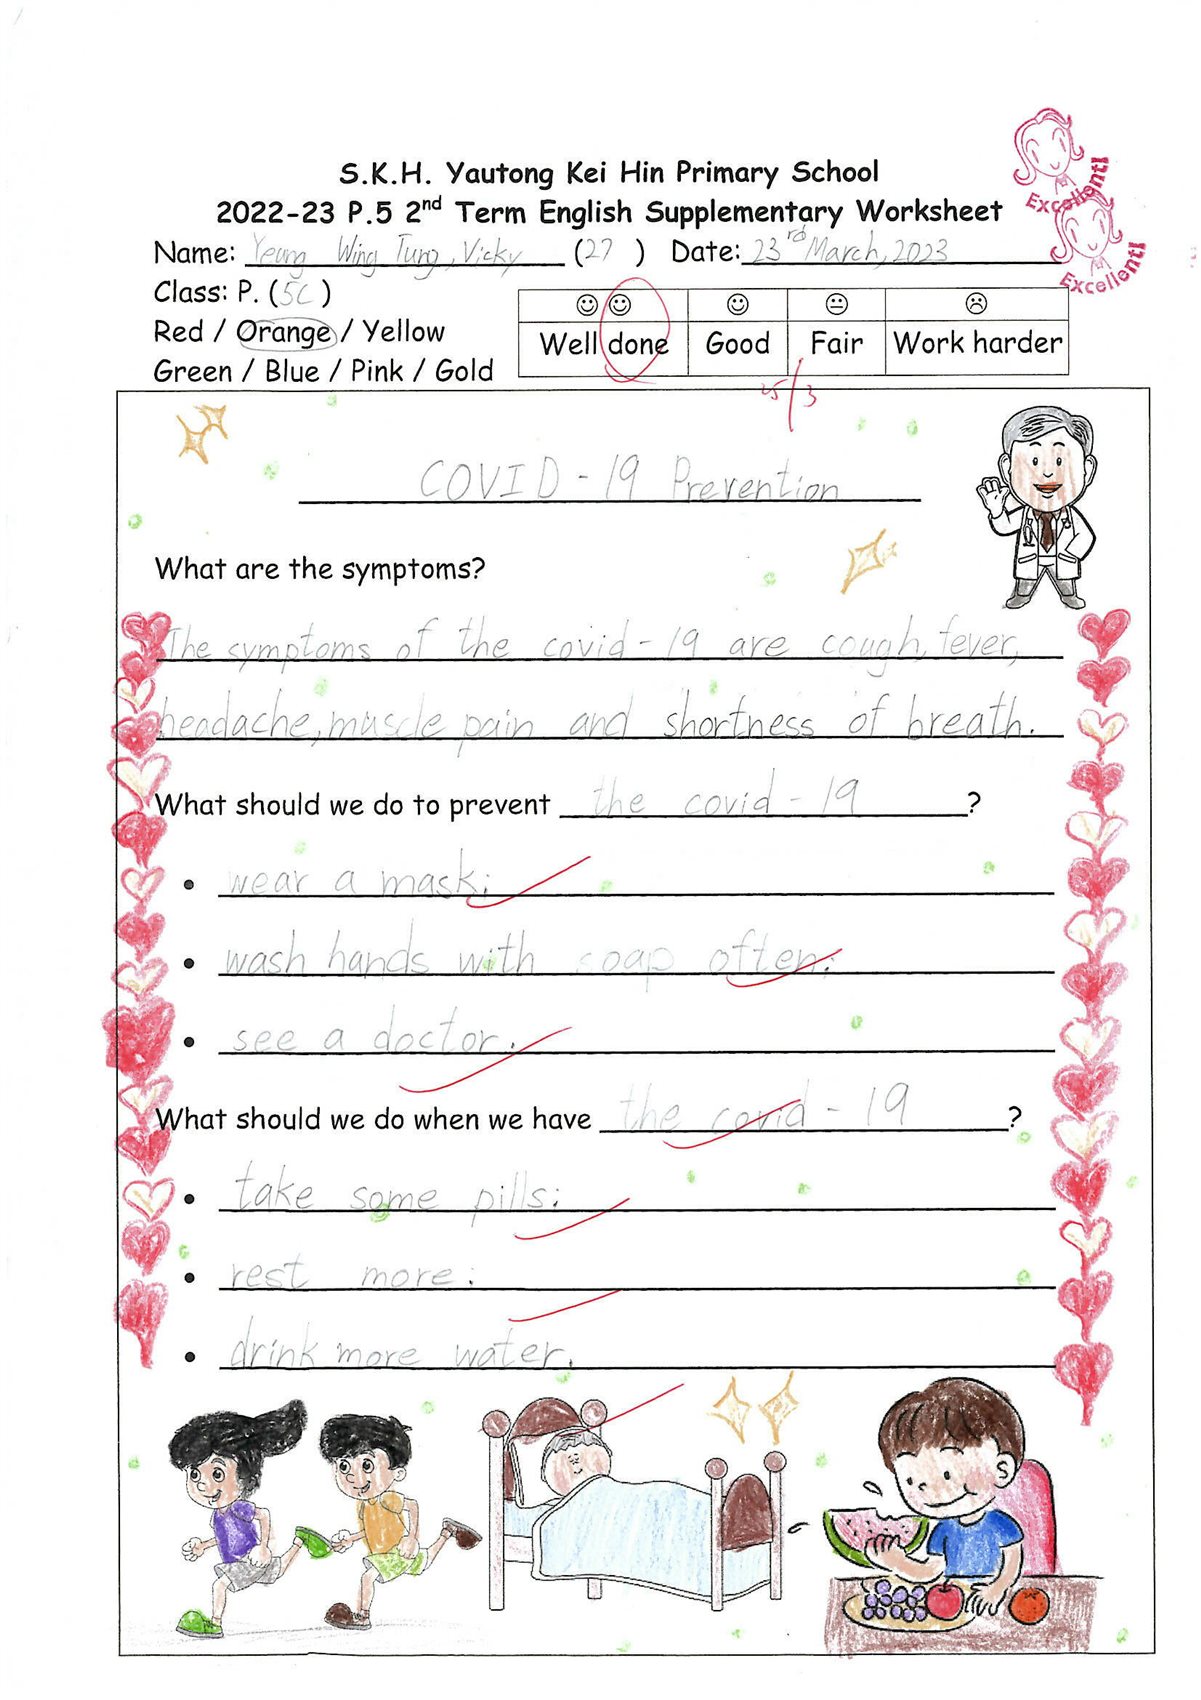 S.K.H. Yautong Kei Hin Primary School
2022-23 P.5 2nd Term English Supplementary Worksheet
Name: Yeung Wing Tung, Vicky (27) Date: 23rd March, 2023
Class: P. (5C)
Red / Orange / Yellow
Green / Blue / Pink / Gold
Well done Good Fair Work harder
Excellent!
Excellent!
25/3
COVID-19 Prevention
What are the symptoms?
The symptoms of the covid-19 are cough, fever,
headache, muscle pain and shortness of breath.
What should we do to prevent the covid-19?
• wear a mask;
• wash hands with soap often;
• see a doctor.
What should we do when we have the covid-19?
• take some pills;
• rest more;
• drink more water.